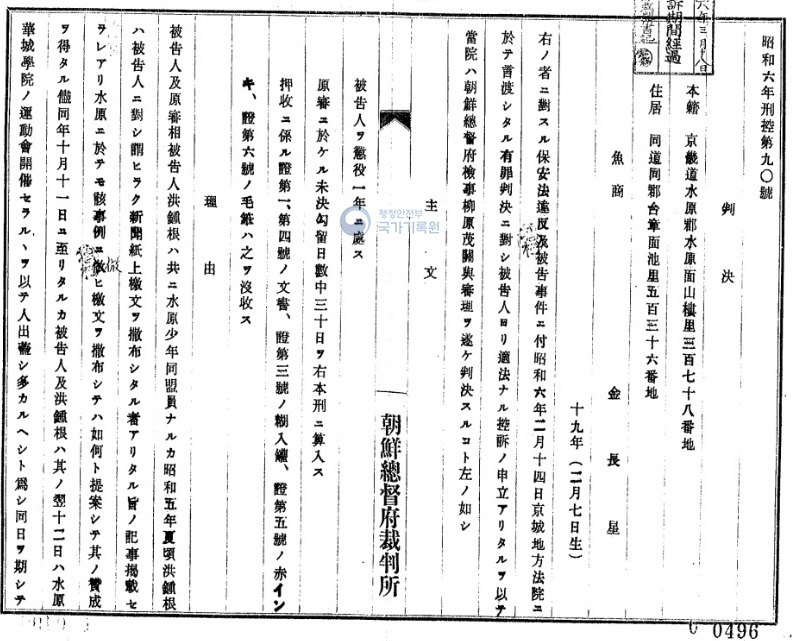 昭和六年刑控第九〇號
判決
本籍 京畿道水原郡水原面山樓里三百七十八番地
住居 同道同郡台章面池里五百三十六番地
魚商 金長星
十九年(二月七日生)
右ノ者ニ對スル保安法違反及被告事件ニ付昭和六年二月十四日京城地方法院ニ
於テ言渡シタル有罪判決ニ對シ被告人ヨリ適法ナル控訴ノ申立アリタルヲ以テ
當院ハ朝鮮總督府檢事柳原茂關與審理ヲ遂ケ判決スルコト左ノ如シ
主文
朝鮮總督府裁判所
被告人ヲ懲役一年ニ處ス
原審ニ於ケル未決勾留日數中三十日ヲ右本刑ニ算入ス
押收ニ係ル證第一、第四號ノ文書、證第三號ノ糊入罐、證第五號ノ赤イン
キ、證第六號ノ毛筆ハ之ヲ沒收ス
理由
被告人及原審相被告人洪鍾根ハ共ニ水原少年同盟員ナルカ昭和五年夏頃洪鍾根
ハ被告人ニ對シ謂ヒラク新聞紙上檄文ヲ撒布シタル者アリタル旨ノ記事揭載セ
ラレアリ水原ニ於テモ該事例ニ倣ヒ檄文ヲ撒布シテハ如何ト提案シテ其ノ賛成
ヲ得タル儘同年十月十一日ニ至リタルカ被告人及洪鍾根ハ其ノ翌十二日ハ水原
華城學院ノ運動會開催セラルヽヲ以テ人出蓋シ多カルヘシト爲シ同日ヲ期シテ
행정안전부
국가기록원
六年三月十八日
訴期間經過
0496